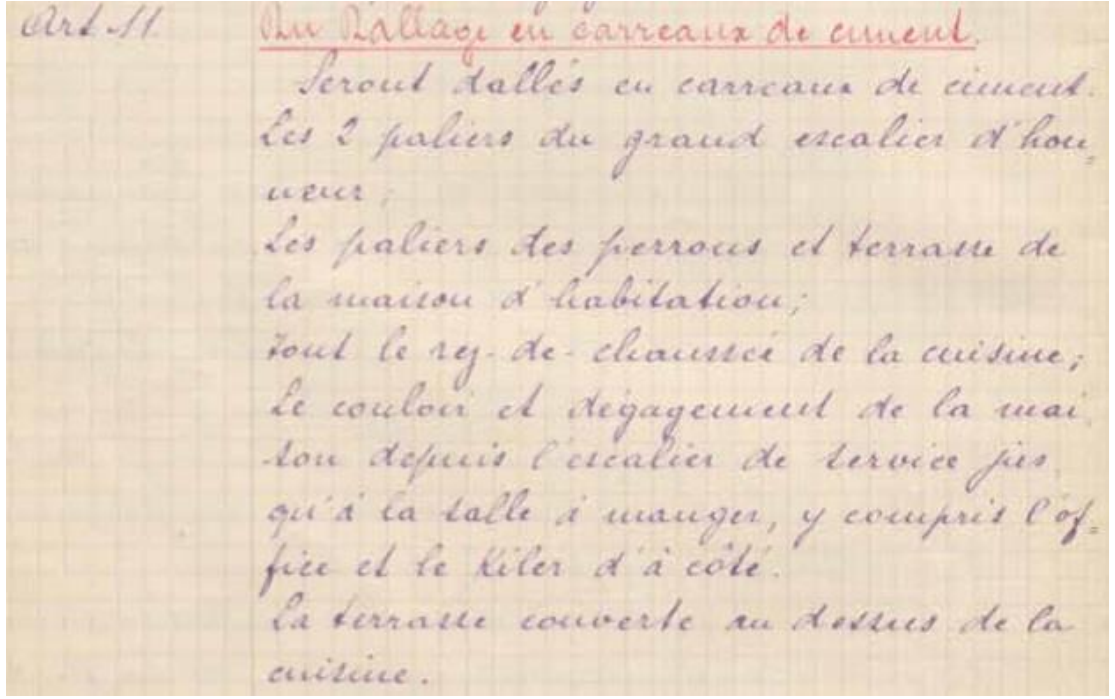 Art 11. Du Dallage en carreaux de ciment.
Seront dallés en carreaux de ciment.
Les 2 paliers du grand escalier d'hon=
neur;
Les paliers des perrons et terrasse de
la maison d'habitation;
Tout le rez-de-chaussée de la cuisine;
Le couloir et dégagement de la mai
son depuis l'escalier de service jus
qu'à la salle à manger, y compris l'of=
fice et le Kiler d'à côté.
La terrasse couverte au dessus de la
cuisine.